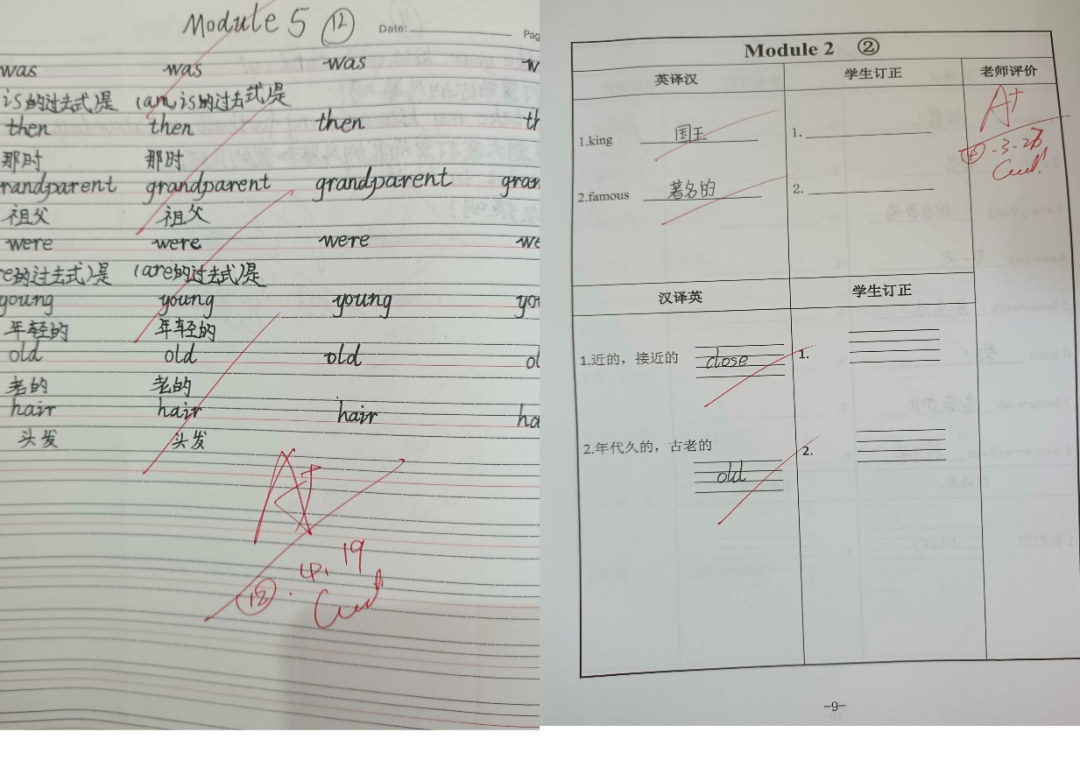 Module 5 ⑫ Date: Pag
was was was w
is的过去式)是 (am,is的过去式)是
then then then th
那时 那时
randparent grandparent grandparent gran
祖父 祖父
were were were we
e的过去式)是 (are的过去式)是
young young young yo
年轻的 年轻的
old old old ol
老的 老的
hair hair hair ha
头发 头发
A+
⑫. 4. 19
Module 2 ②
英译汉 学生订正 老师评价
1.king 国王 1.
2.famous 著名的 2.
A+
.3.23
汉译英 学生订正
1.近的，接近的 close 1.
2.年代久的，古老的 old 2.
-9-